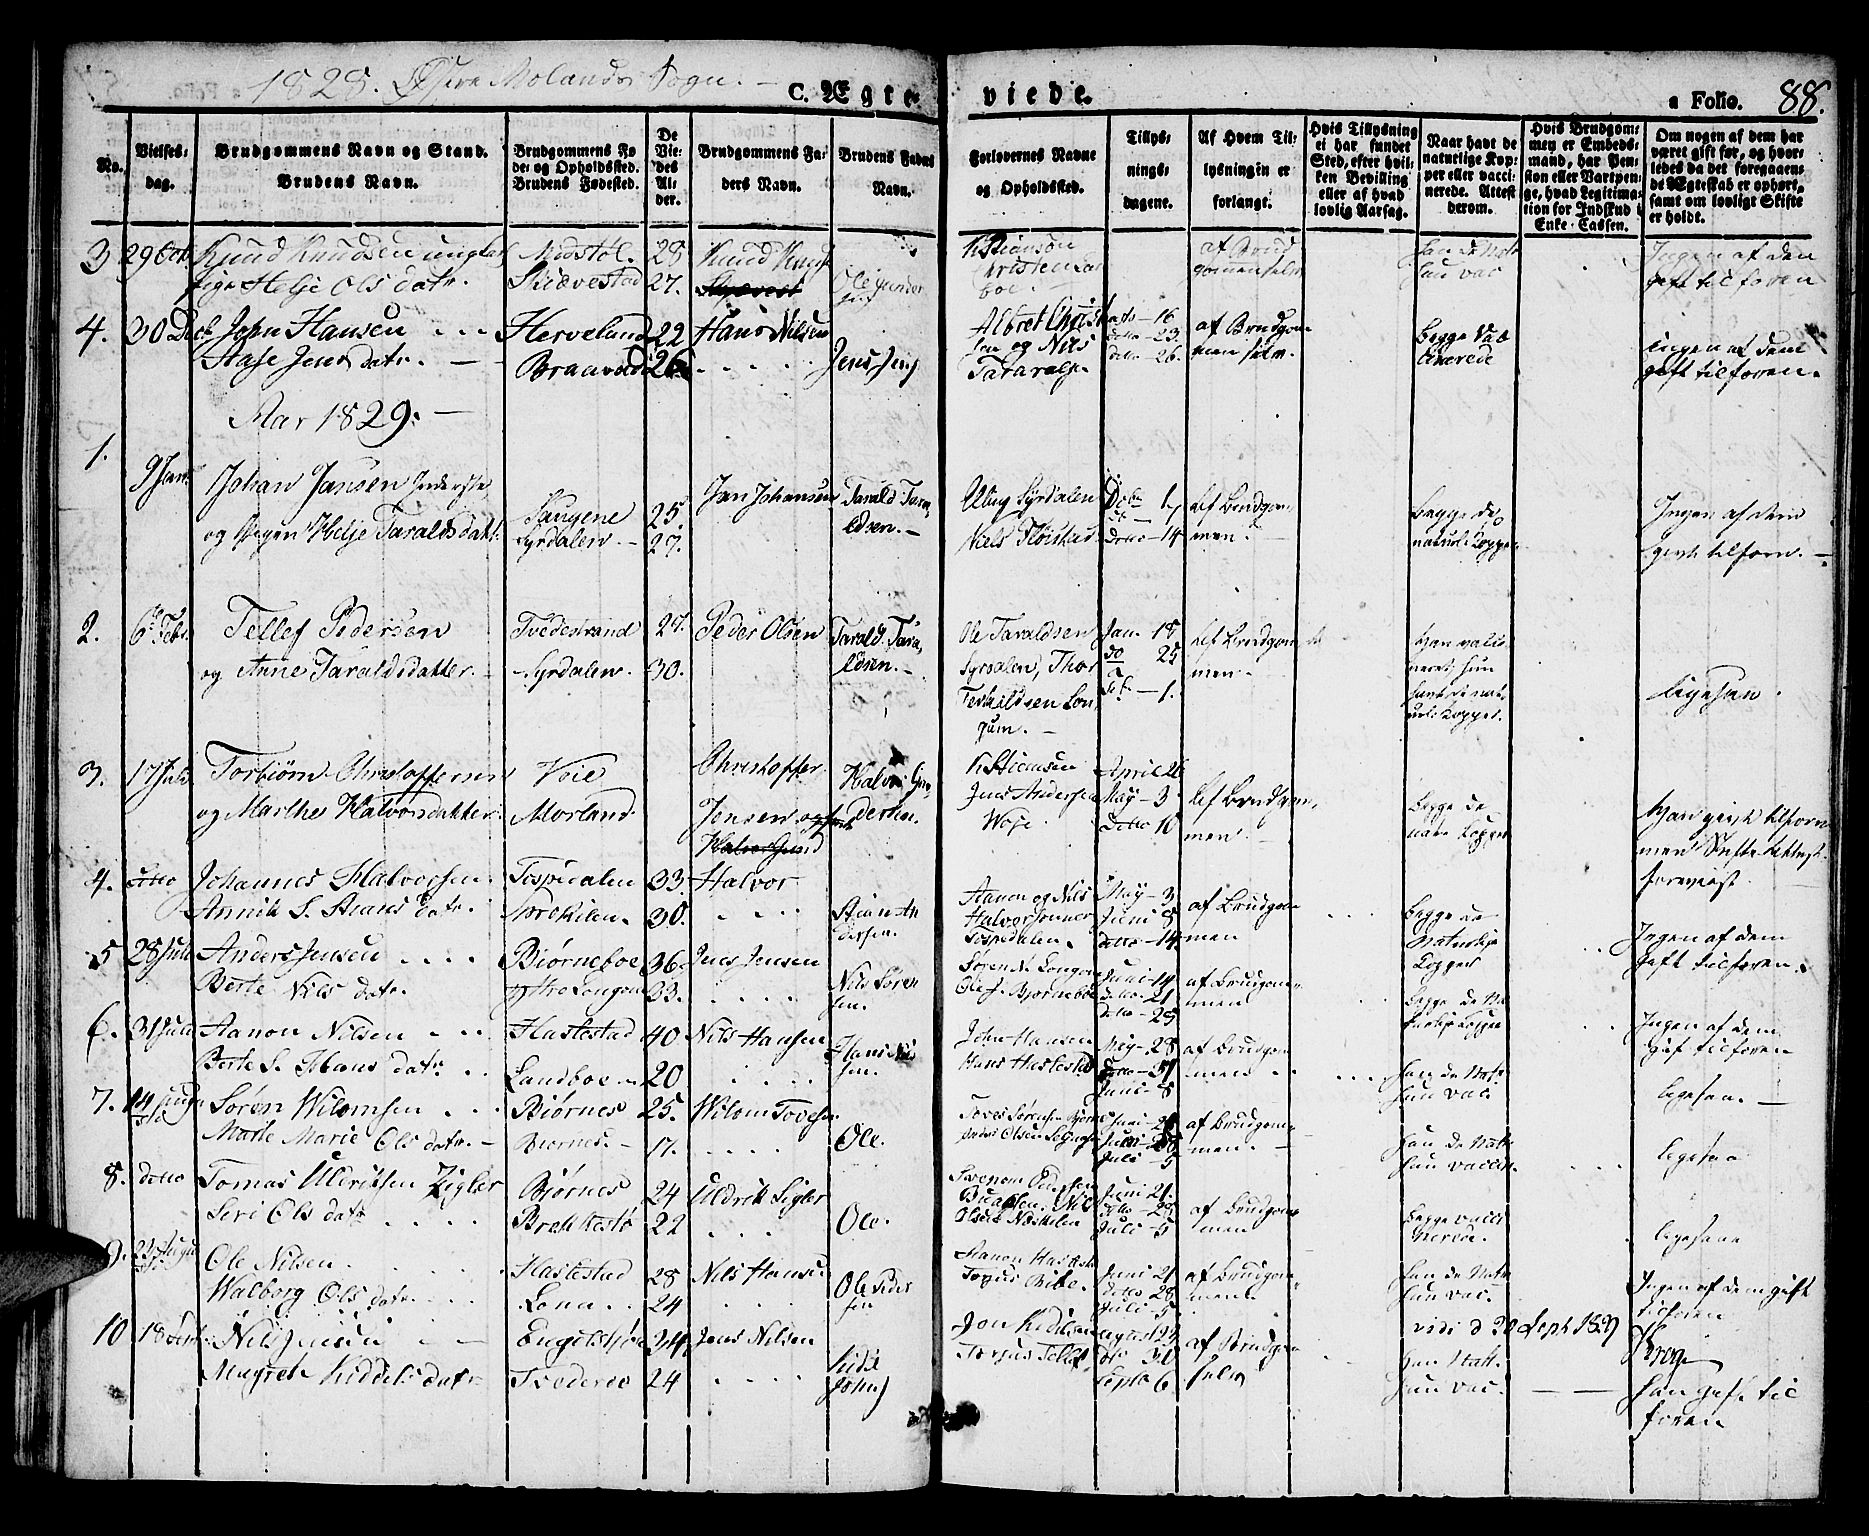 1828. Østre Molands Sogn.
C. Ægte-
viede.
a Folio. 88.
No.
Vielses-
dag.
Brudgommens Navn og Stand.
Brudens Navn.
Brudgommens Fø-
de- og Opholdssted.
Brudens Fødested.
De
Vie-
des
Al-
der.
Brudgommens Fa-
ders Navn.
Brudens Faders
Navn.
Forlovernes Navne
og Opholdssted.
Tillys-
nings-
dagene.
Af Hvem Til-
lysningin er
forlangt.
Hvis Tillysning
ei har fundet
Sted, efter hvil-
ken Bevilling
eller af hvad
lovlig Aarsag.
Naar havt de
naturlige Kop-
per eller vacci-
nerede. Attest
derom.
Hvis Brudgom-
men er Embeds-
mand, har Pen-
sion eller Vartpen-
ge, hvad Legitima-
tion for Indskud i
Enke-Cassen.
Om nogen af dem har
været gift før, og hvor-
ledes da det foregaaen-
de Ægteskab er ophørt,
samt om lovligt Skifte
er holdt.
3 29 Oct. Knud Knudsen ungkarl Nidstøl. 28 Knud Knuds
pige Helje Olsdatr. Skiævestad 27. Ole Gunder
sen
Kristienson
Christen
boe.
af Brud
gommen selv
han de Nat
hun vac
Ingen af dem
gift tilforen
4. 30 Dec John Hansen Herveland 22 Hans Nilsen
Stase Jens datr. Braavold 26 Jens Jens
Albret Christ
sen og Nils
Tararalp.
16
detto - 23.
detto - 26.
af Brudgom
men selv.
begge Vac
cinerede
ingen af dem
gift tilforen.
Aar 1829.
1. 9 Jan. Johan Jansen Inderste
og Pigen Helje Taraldsdatt.
Haugene
Syrdalen
25.
27.
Jan Johansen
Tarald Tara
ldsen.
Ellug Syrdalen
Niels Flørstad
Decbr
Detto - 14
af Brudgom
men.
begge de
naturl. Kopper
Ingen af dem
givt tilforn.
2. 6 Febr. Tellef Pedersen
og Anne Taraldsdatter.
Tvedestrand
Syrdalen.
27.
30.
Peder Olsen
Tarald Tara
ldsen.
Ole Taraldsen
Syrdalen, Thor
Terkildsen Lon
gum.
Jan. 18
do 25
Feb. - 1.
af Brudgom
men.
han vacci
neret, hun
havt de nat
url. Kopper.
ligesaa
3. 17 Juli Torbiørn Christoffersen
og Marthe Halvorsdatter
Voie
Morland
Christoffer
Jensen
Halvor Gun
dersen.
Kristiensen
Jens Andersen
Woje.
April 26
May - 3
Detto 10
af Brudgom
men.
begge de
natu Kopper
han givt tilforn
men Skifte Attest
foreviist.
4. detto Johannes Halvorsen
Annik S. Aans datr.
Tospidalen
Nørekilen.
33.
30.
Halvor
Aan An
dersen.
Aanon og Nils
Halvor Jonner
Tospedalen.
May - 3
Juni 8
detto - 14
af Brudgom
men
begge de
Naturlige
Kopper
Ingen af dem
gift tilforen.
5 28 Juli Anders Jensen
Berte Nils datr.
Biørneboe
ystre Longom
36.
33.
Jens Jensen
Nils Søren
sen.
Søren N. Longom
Ole J. Bjørneboe
Juni - 14
detto - 21
detto - 29
af Brudgom
men
begge de Na
turlige Kopper
Ingen af dem
gift tilforen
6. 31 Juli Aanon Nilsen
Berte S. Hans datr.
Hastestad
Landboe
40
20
Nils Hansen
Hans Nil
sen.
John Hansen
Hans Hastestad
May - 28
detto - 31
Juni - 8
af Brudgom
men
han de Nat.
hun vac.
ligesaa.
7. 14 Augu
sto Søren Wilomsen
Marte Marie Ols datr.
Biørnes
Biørnes.
25.
17.
Wilom Tovesen
Ole.
Toves Sørensen Bjørnes
Juni - 21
Juni - 28
Juli - 5
af Brudgom
men.
han de Natt.
hun vaccin.
ligesaa
8. detto Tomas Ulriksen Zigler
Seri Ols datr
Bjørnes
Brakkestø
24
22
Uldrik Sigler
Ole.
Svenom Pedersen
Nils
Olsen Næskilen
Juni 21.
detto - 28
Juli - 5
af Brudgom
men
begge vacci
nerede.
ligesaa
9. 23 Augu
st. Ole Nilsen
Walborg Ols datr.
Hastestad
Lona
28
24
Nils Hansen
Ole Peder
sen
Aanon Hastest
Tomas Bibe.
Juni 21
detto 28
Juli - 5
af Brudgom
men.
han de Natr
hun vac.
Ingen af dem gift
tilforen
vidi d 20 Sept 1829
10 18 Sept. Nils Jensen
Magrete Kiddels datr
Engelstøe
Tvedereo
34
24
Jens Nilsen
Kidil
Johns
Jon Kidelsen
Torjus Tellef
August 23
detto 30
Septo 6.
af Brudgom
selv
han Natt.
hun vac.
han gift til
foren